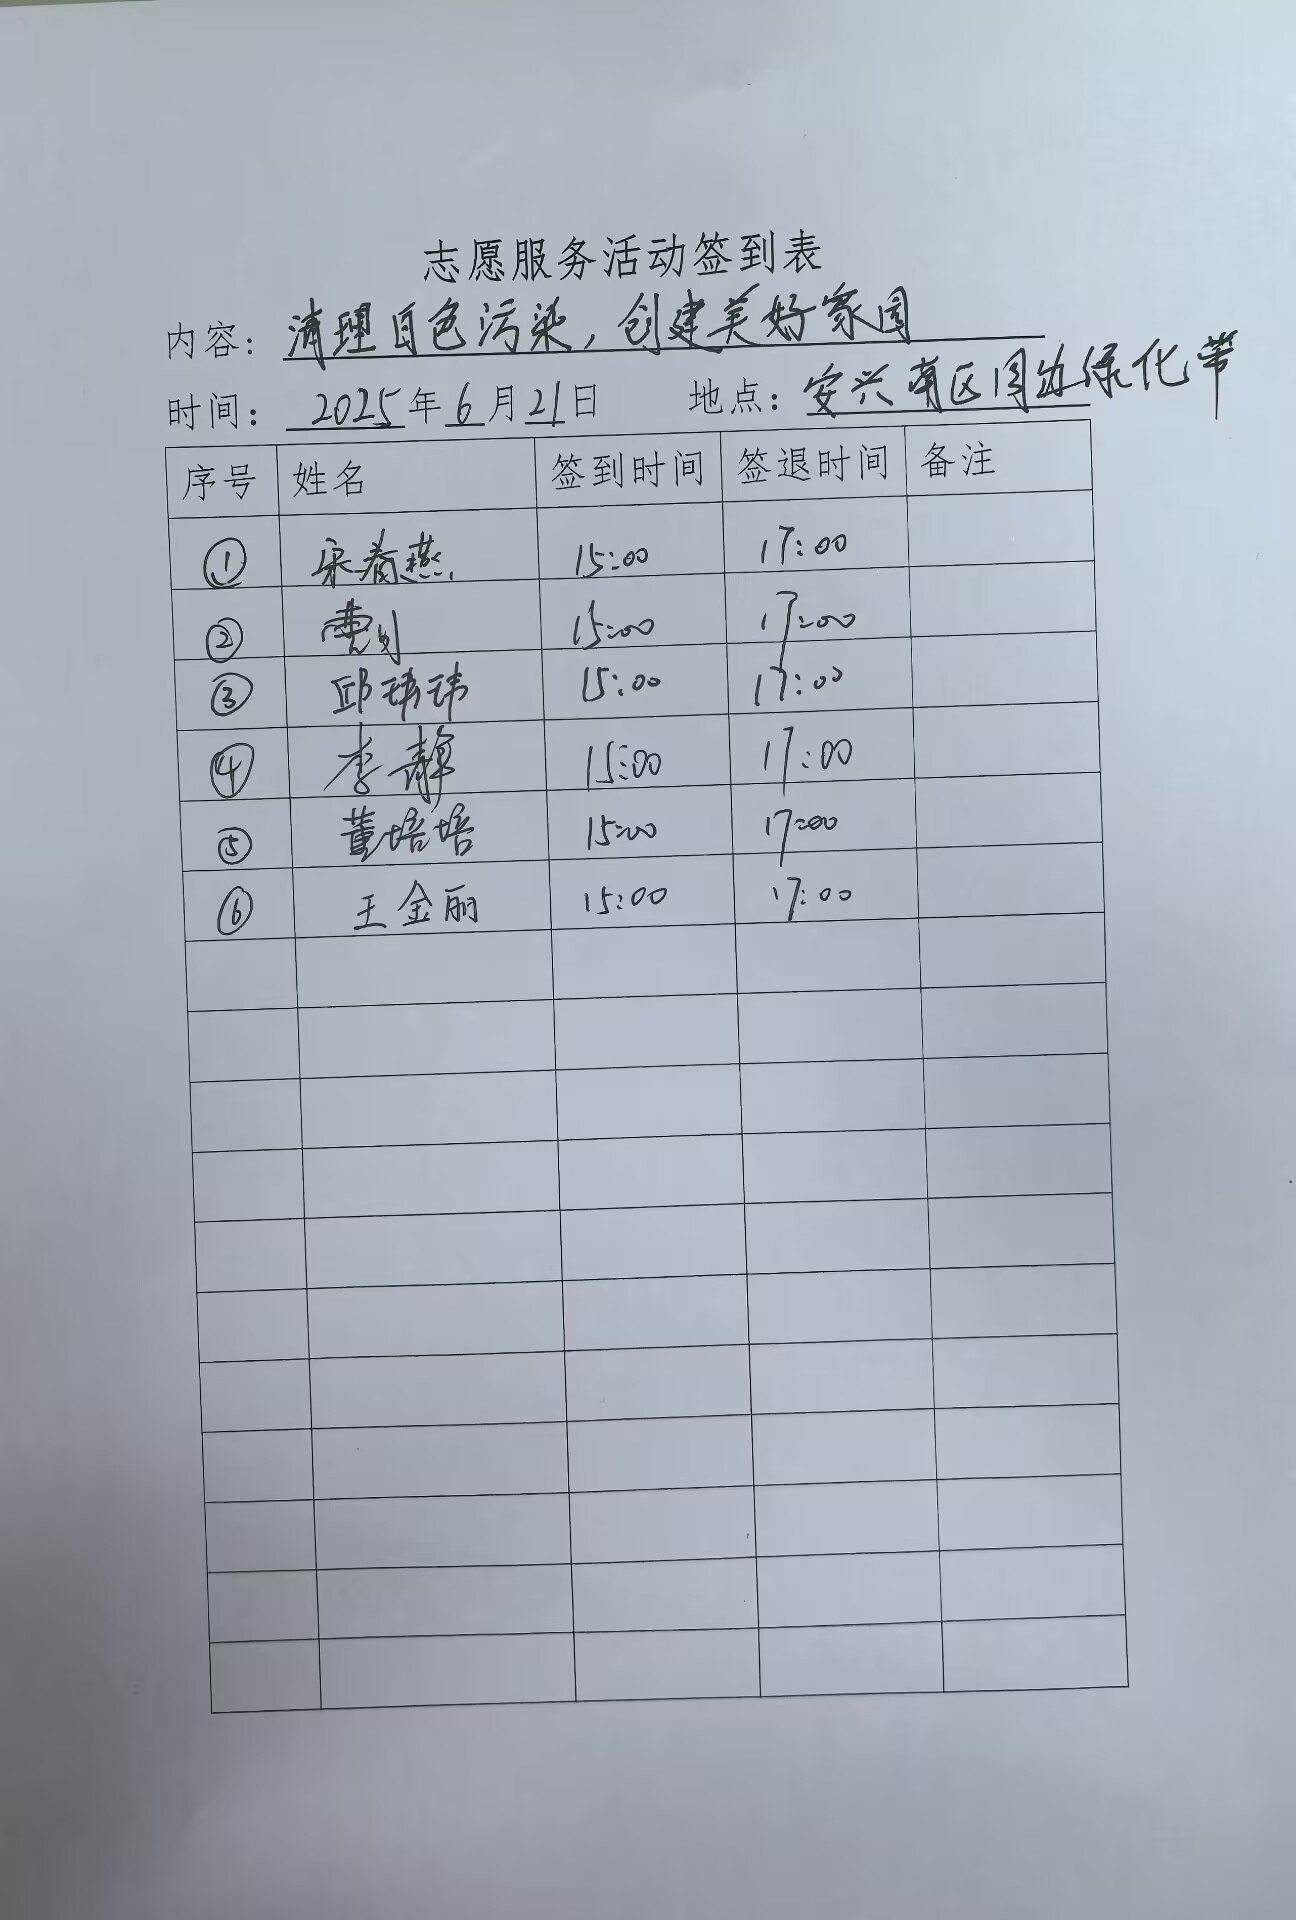 志愿服务活动签到表
内容：清理白色污染，创建美好家园
时间：2025年6月21日 地点：安兴南区周边绿化带
序号 姓名 签到时间 签退时间 备注
① 宋春燕 15:00 17:00
② 曹 15:00 17:00
③ 邱玮玮 15:00 17:00
④ 李静 15:00 17:00
⑤ 董培培 15:00 17:00
⑥ 王金丽 15:00 17:00